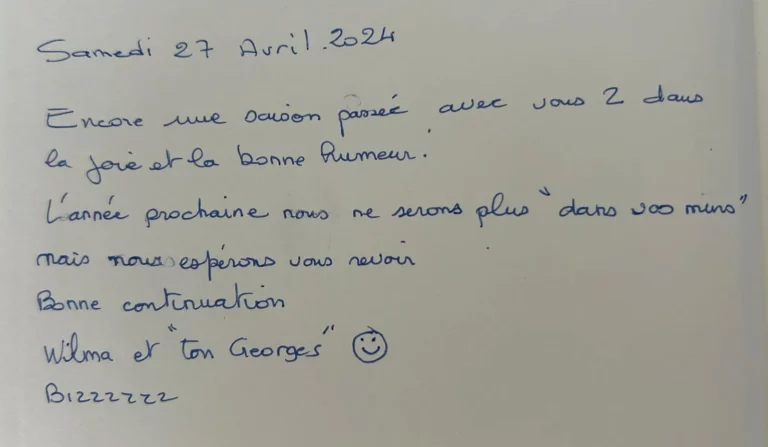 Samedi 27 Avril.2024
Encore une saison passée avec vous 2 dans
la joie et la bonne humeur.
L'année prochaine nous ne serons plus "dans vos murs"
mais nous espérons vous revoir
Bonne continuation
Wilma et "ton Georges" ☺
Bizzzzzz